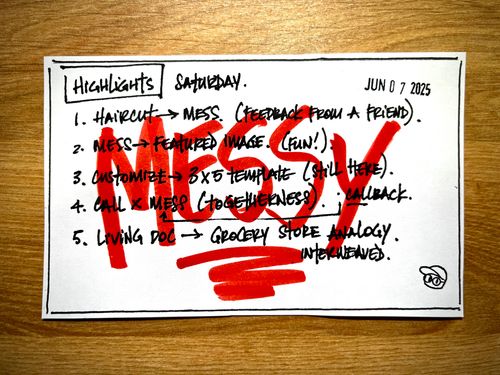 HIGHLIGHTS SATURDAY. JUN 07 2025
1. HAIRCUT → MESS. (FEEDBACK FROM A FRIEND).
2. MESS → FEATURED IMAGE. (FUN!).
3. CUSTOMIZE → 3X5 TEMPLATE (STILL HERE).
4. CALL X MESS (TOGETHERNESS). CALLBACK.
5. LIVING DOC → GROCERY STORE ANALOGY.
INTERWEAVED.
MESSY